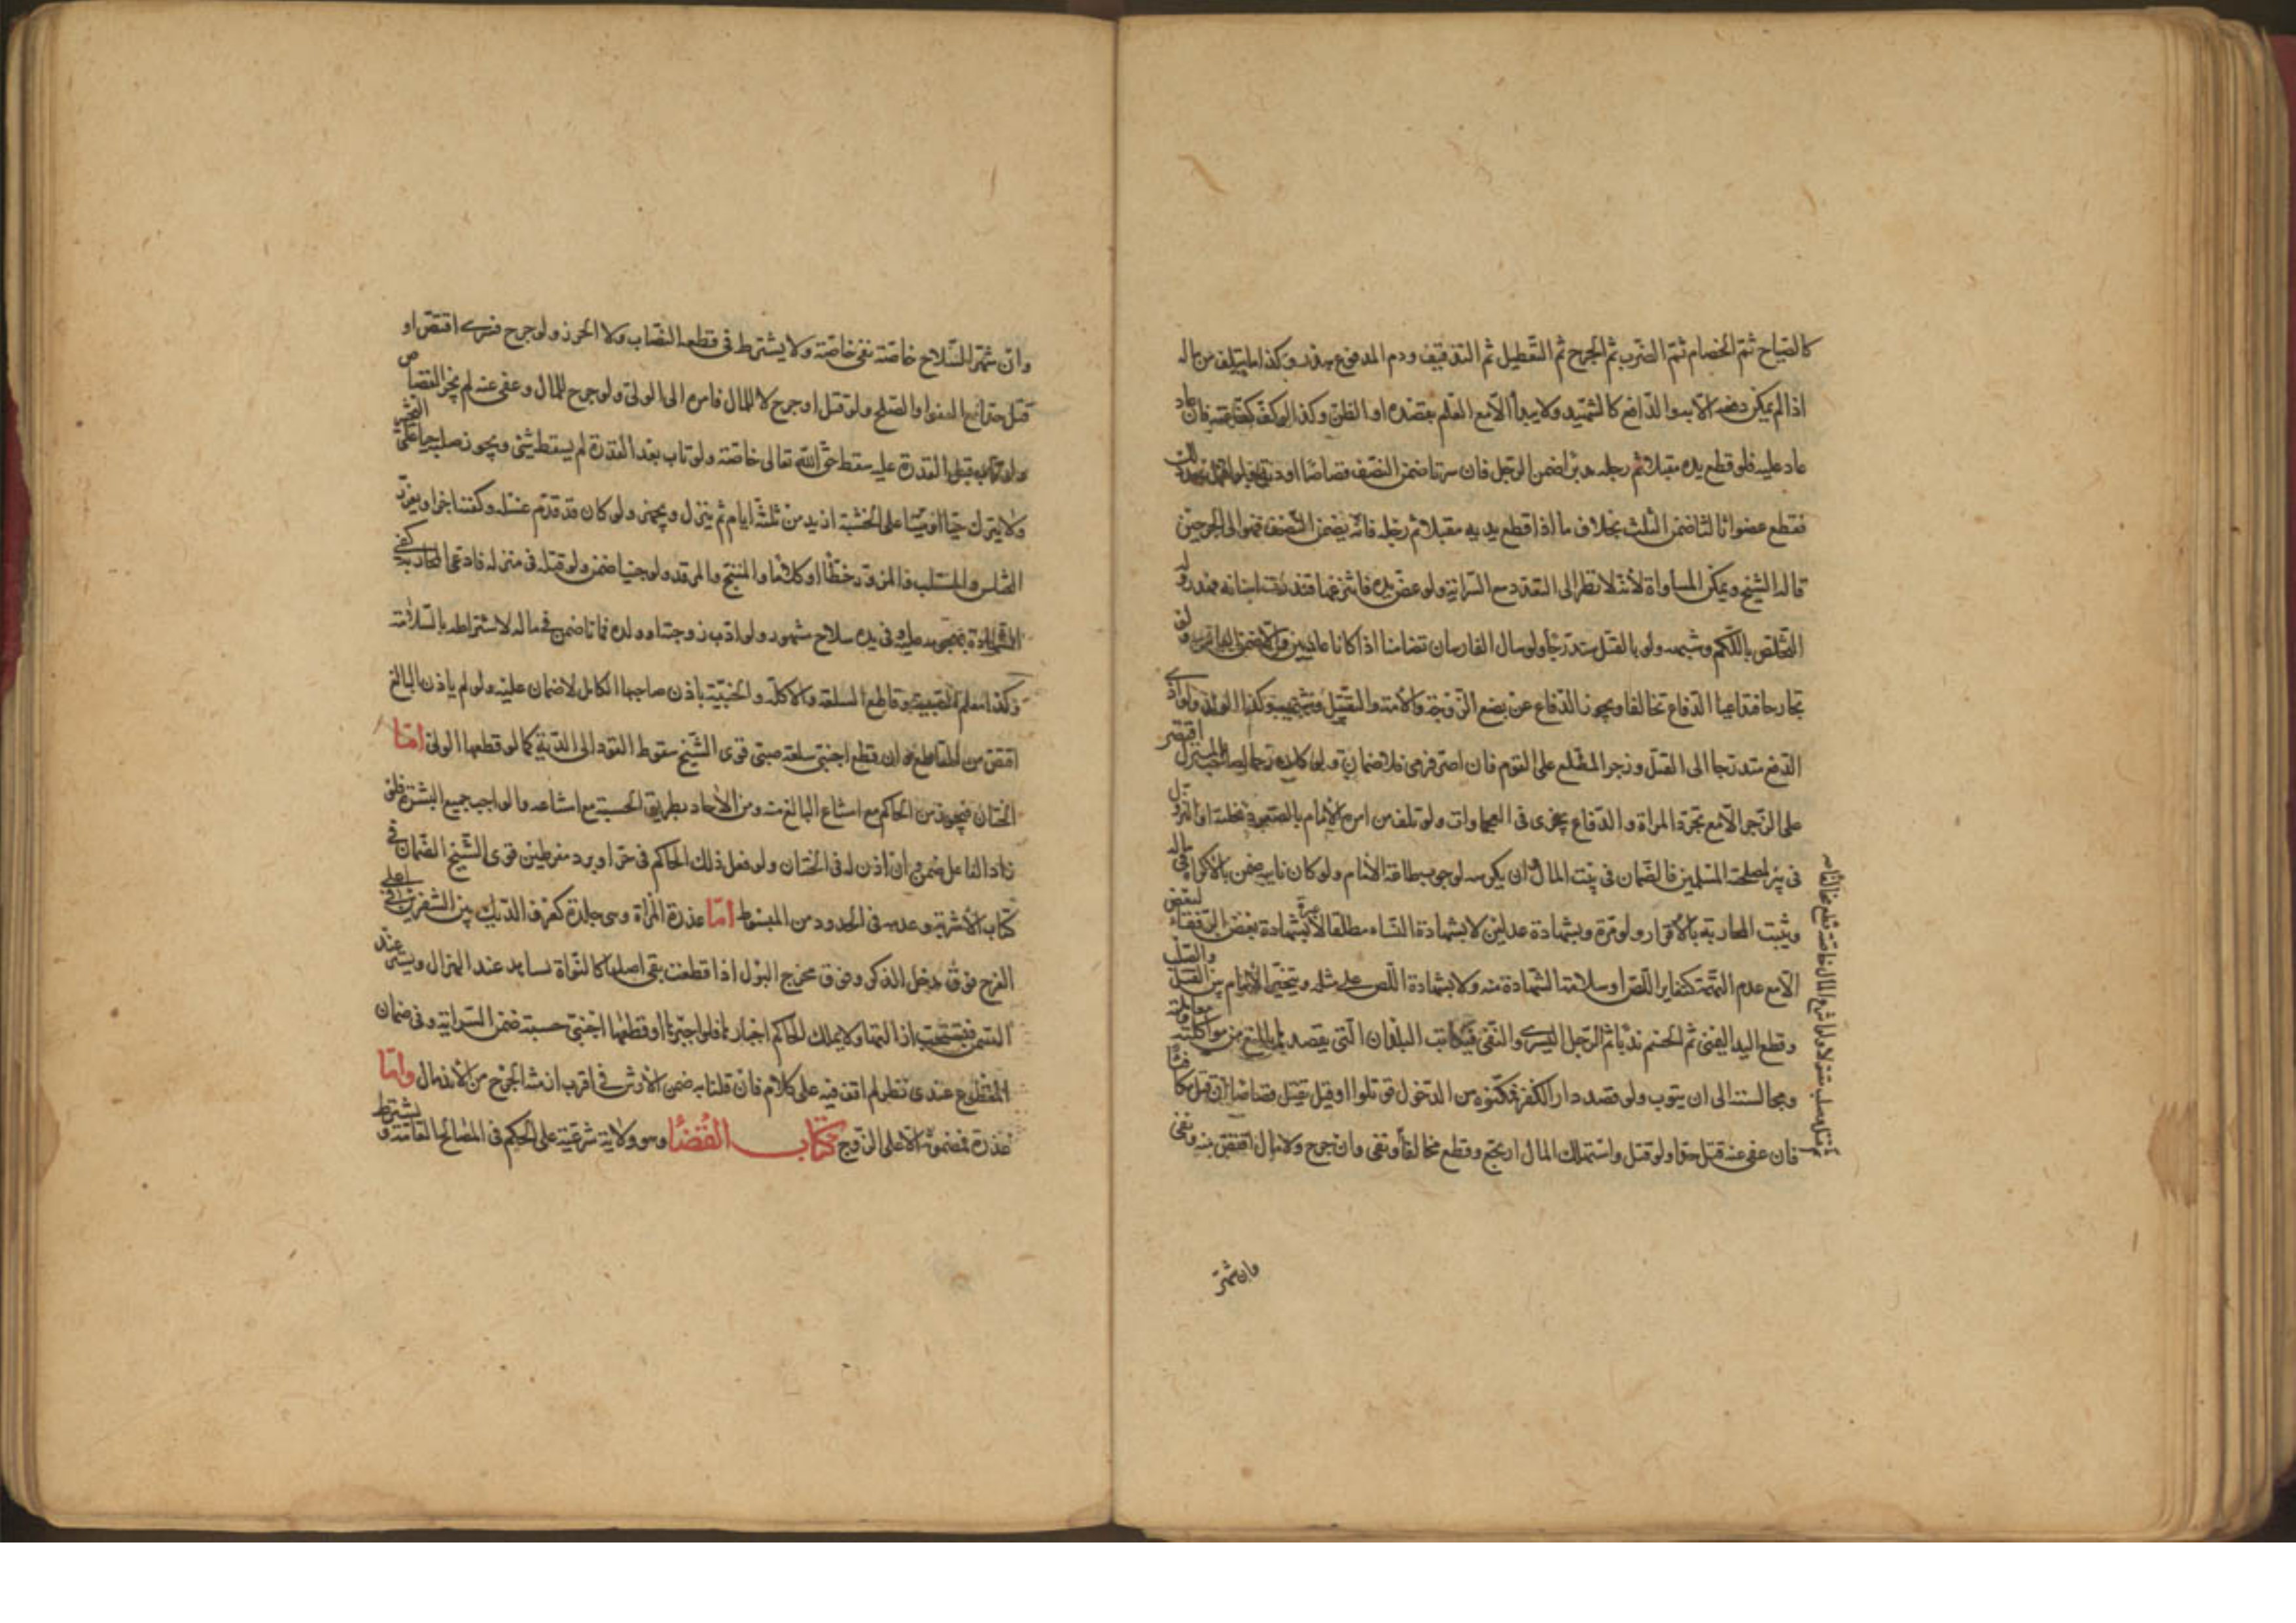 كالصياح ثم الخصام ثم الضرب ثم الجرح ثم التعطيل ثم التذفيف ودم المدفوع هدر وكذا ما يتلف من ماله
اذا لم يمكن دفعه الا به والدافع كالشهيد ولا يبدأ الا مع العلم بقصده او الظن وكذا لو كف كف عنه فان عاد
عاد عليه فلو قطع يده مقبلا ثم رجله مدبرا ضمن الرجل فان سرتا ضمن النصف قصاصا او دية
فقطع عضوا ثالثا ضمن الثلث بخلاف ما اذا قطع يديه مقبلا ثم رجله فانه يضمن النصف لتوالى الجرحين
قاله الشيخ ويمكن المساواة لأنه لا نظر الى التعدد مع السراية ولو عض يده فانتزعها فندرت اسنانه فهدر وله
التخلص باللكم وشبهه ولو بالقتل متدرجا ولو صال الفارسان تضامنا اذا كانا عاديين والا ضمن العادى ولو
تجارحا فادعيا الدفاع تحالفا ويجوز الدفاع عن بضع الزوجة والأمة والتقبيل وشبهه وكذا الولد ولو ادى
الدفع متدرجا الى القتل وزجر المطلع على القوم فان اصر فرمى فلا ضمان ولو كان رحما لصاحب المنزل اقتصر
على الزجر الا مع تجرد المراة والدفاع يجرى فى العجماوات ولو تلف من امره الإمام بالصعود فى نخلة او النزول
فى بئر لمصلحة المسلمين فالضمان فى بيت المال وان يكن له لوجوب طاعة الأمام ولو كان نايبه ضمن بالأكراه فى ماله
ويثبت المحاربة بالأقرار ولو مرة وبشهادة عدلين لا بشهادة النساء مطلقا ولا بشهادة بعض الرفقاء لبعض
الا مع عدم التهمة كتغاير اللص او سلامة الشهادة منه ولا بشهادة اللص على مثله ويتخير الأمام بين القتل والصلب
وقطع اليد اليمنى ثم الحسم ندبا ثم الرجل اليسرى والنفى فيكاتب البلدان التى يقصدها بالمنع من مواكلته ومعاملته
ومجالسته الى ان يتوب ولو قصد دار الكفر فمكنوه من الدخول قوتلوا وقيل يقتل قصاصا ان قتل مكافئا
فان عفى عنه قتل حدا ولو قتل واستهلك المال ارتجع وقطع مخالفا ونفى وان جرح ولا مال اقتص منه ونفى
وان شهر
وان شهر السلاح خاصة نفى خاصة ولا يشترط فى قطعه النصاب ولا الحرز ولو جرح فسرى اقتص او
قتل حدا مع العفو او الصلح ولو قتل او جرح لا للمال فامره الى الولى ولو جرح للمال وعفى عنه لم يجز القصاص
ولو تاب قبل القدرة عليه سقط حق الله تعالى خاصة ولو تاب بعد القدرة لم يسقط شئ ويجوز صلبه حيا على التخير
ولا يترك حيا او ميتا على الخشبة ازيد من ثلثة ايام ثم ينزل ويجهز ولو كان قد قدم غسله وكفنه اجزا ويعزر
المختلس والمستلب والمزور خطا او كلاما والمبنج والمرقد ولو جنيا ضمن ولو قتله فى منزله فادعى المحاربة كفى
الشهادة بهجومه عليه وفى يده سلاح مشهور ولو ادب زوجته او ولده فماتا ضمن فى ماله لاشتراطه بالسلامة
وكذا معلم الصبية وقاطع السلعة والاكلة والخبيثة باذن صاحبها الكامل لا ضمان عليه ولو لم ياذن البالغ
اقتص من القاطع ولو قطع اجنبى سلعة صبى قوى الشيخ سقوط القود الى الدية كما لو قطعها الولى اما
الختان فيجوز من الحاكم مع امتناع البالغ منه ومن الآحاد بطريق الحسبة مع امتناعه والواجب جميع البشرة فلو
زاد الفاعل ضمن وان اذن له فى الختان ولو فعل ذلك الحاكم فى حر او برد مفرطين قوى الشيخ الضمان فى
كتاب الأشربة وعدمه فى الحدود من المبسوط اما عذرة المراة وهى جلدة كعرف الديك بين الشفرين فى اعلى
الفرج فوق مدخل الذكر وفوق مخرج البول اذا قطعت بقى اصلها كالنواة تشاهد عند الهزال ويستر عند
السمن فيستحب ازالتها ولا يملك الحاكم اجبارها فلو اجبرها او قطعها اجنبى حسبة ضمن السراية وفى ضمان
المقطوع عندى نظر لم اقف فيه على كلام فان قلنا به ضمن الأرش فى اقرب ازمنة الجرح من الأندمال واما
عذرة فمضمونة الا على الزوج كتاب القضا وهو ولاية شرعية على الحكم فى المصالح العامة ويشترط